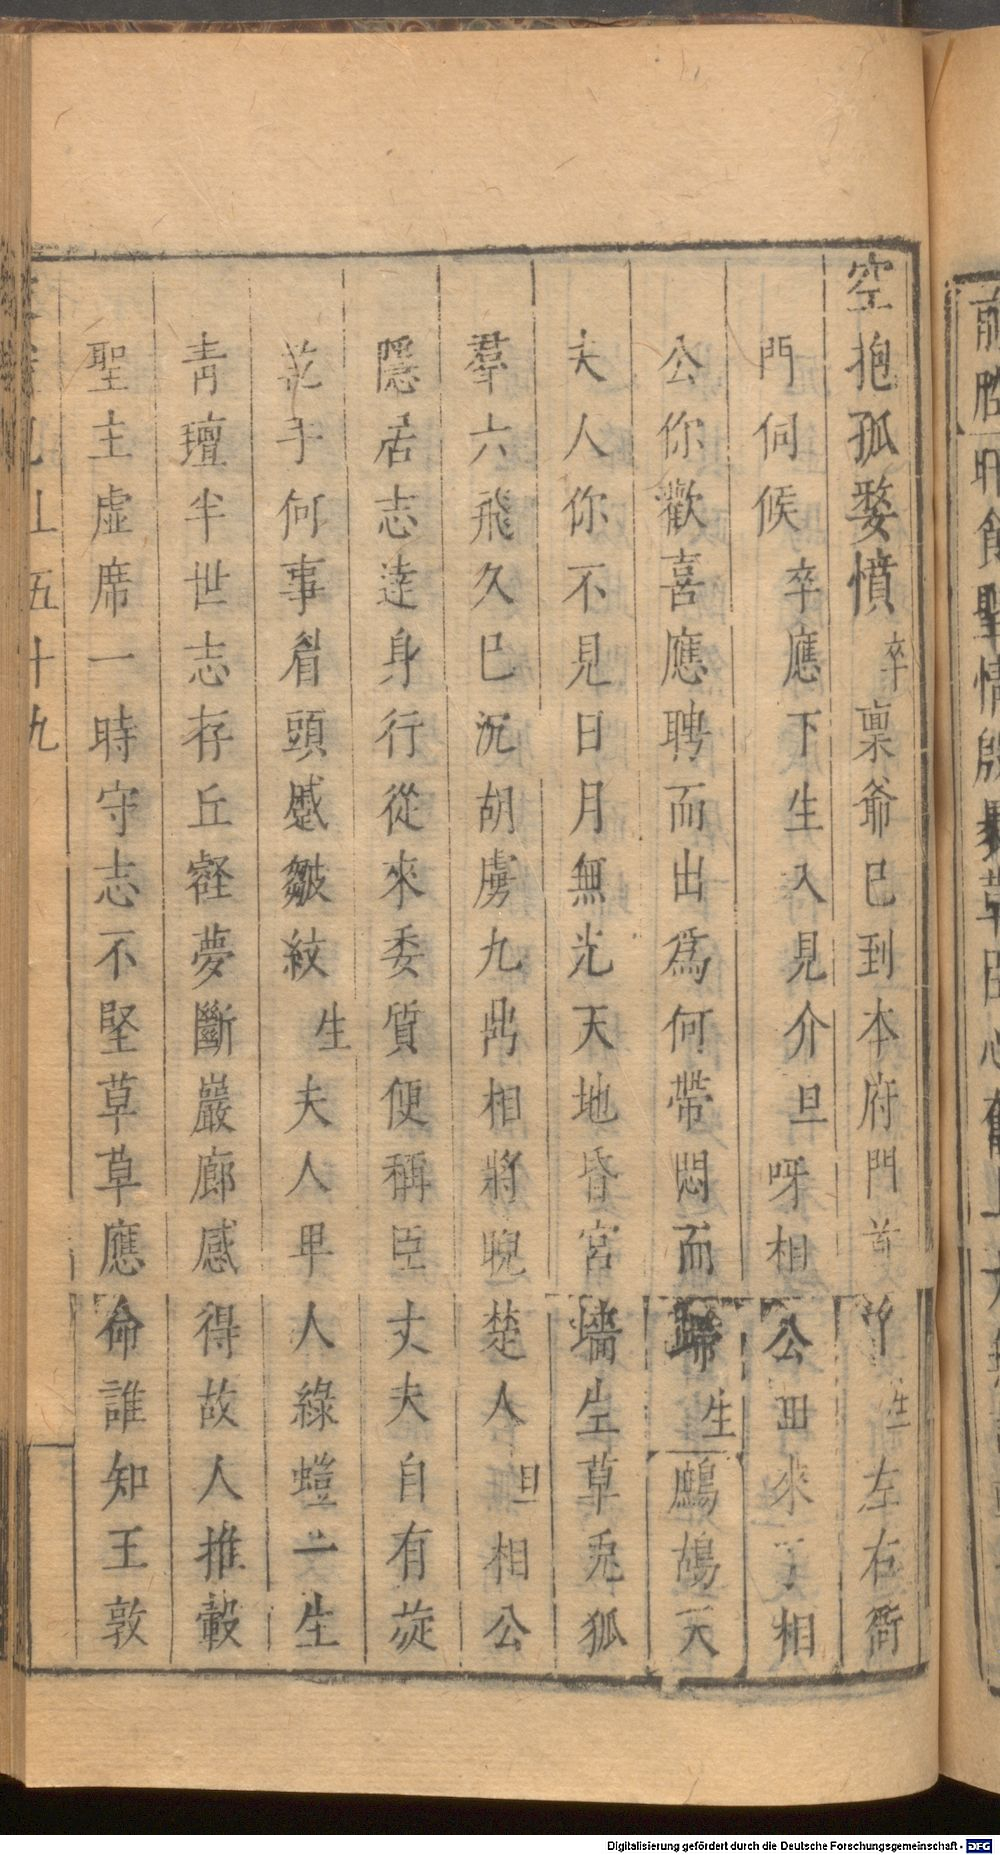 空抱孤嫠憤卒稟爺已到本府門首介生左右衙
門伺候卒應下生入見介旦呀相公囬來了相
公你歡喜應聘而出爲何帶悶而歸生鷓鴣天
夫人你不見日月無光天地昏宮墻生草兎狐
羣六飛久已沉胡虜九鼎相將睨楚人旦相公
隱居志達身行從來委質便稱臣丈夫自有旋
乾手何事眉頭蹙皺紋生夫人畢人綠螘一生
靑氊半世志存丘壑夢斷嚴廊感得故人推轂
聖主虛席一時守志不堅草草應命誰知王敦
上五十九
Digitalisierung gefördert durch die Deutsche Forschungsgemeinschaft - DFG